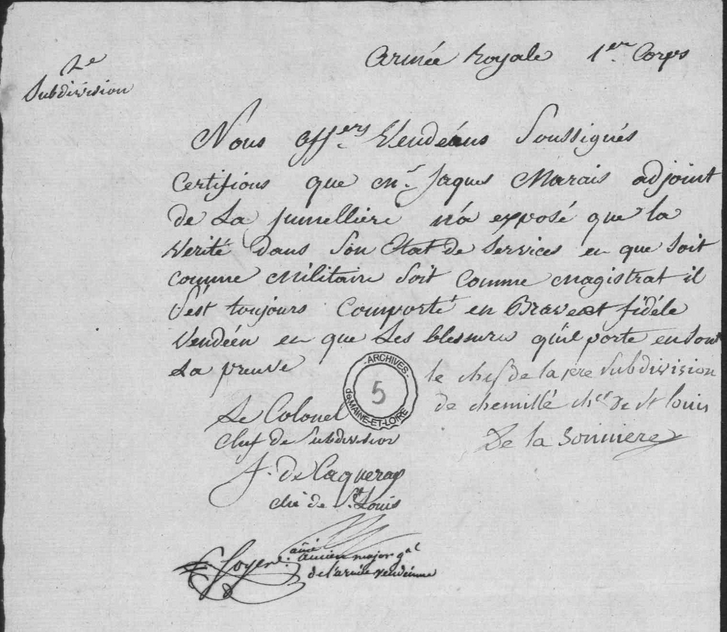 2e
Subdivision
Armée Royale 1er Corps
Nous offers Vendéens Soussignés
Certifions que mr. Jaques Marais adjoint
de La Jumellière n'a exposé que la
Verité dans son Etat de Services en que soit
comme Militaire soit comme magistrat il
s'est toujours Comporté en Brave et fidéle
Vendéen en que Les blessures qu'il porte en sont
La preuve
le chef de la 1ere Subdivision
de chemillé cher. de st Louis
De la Sorinière
ARCHIVES
de MAINE-ET-LOIRE
5
Le Colonel
Chef de Subdivision
J. de Caqueray
che de St Louis
ancien major gal
de l'armée vendéenne